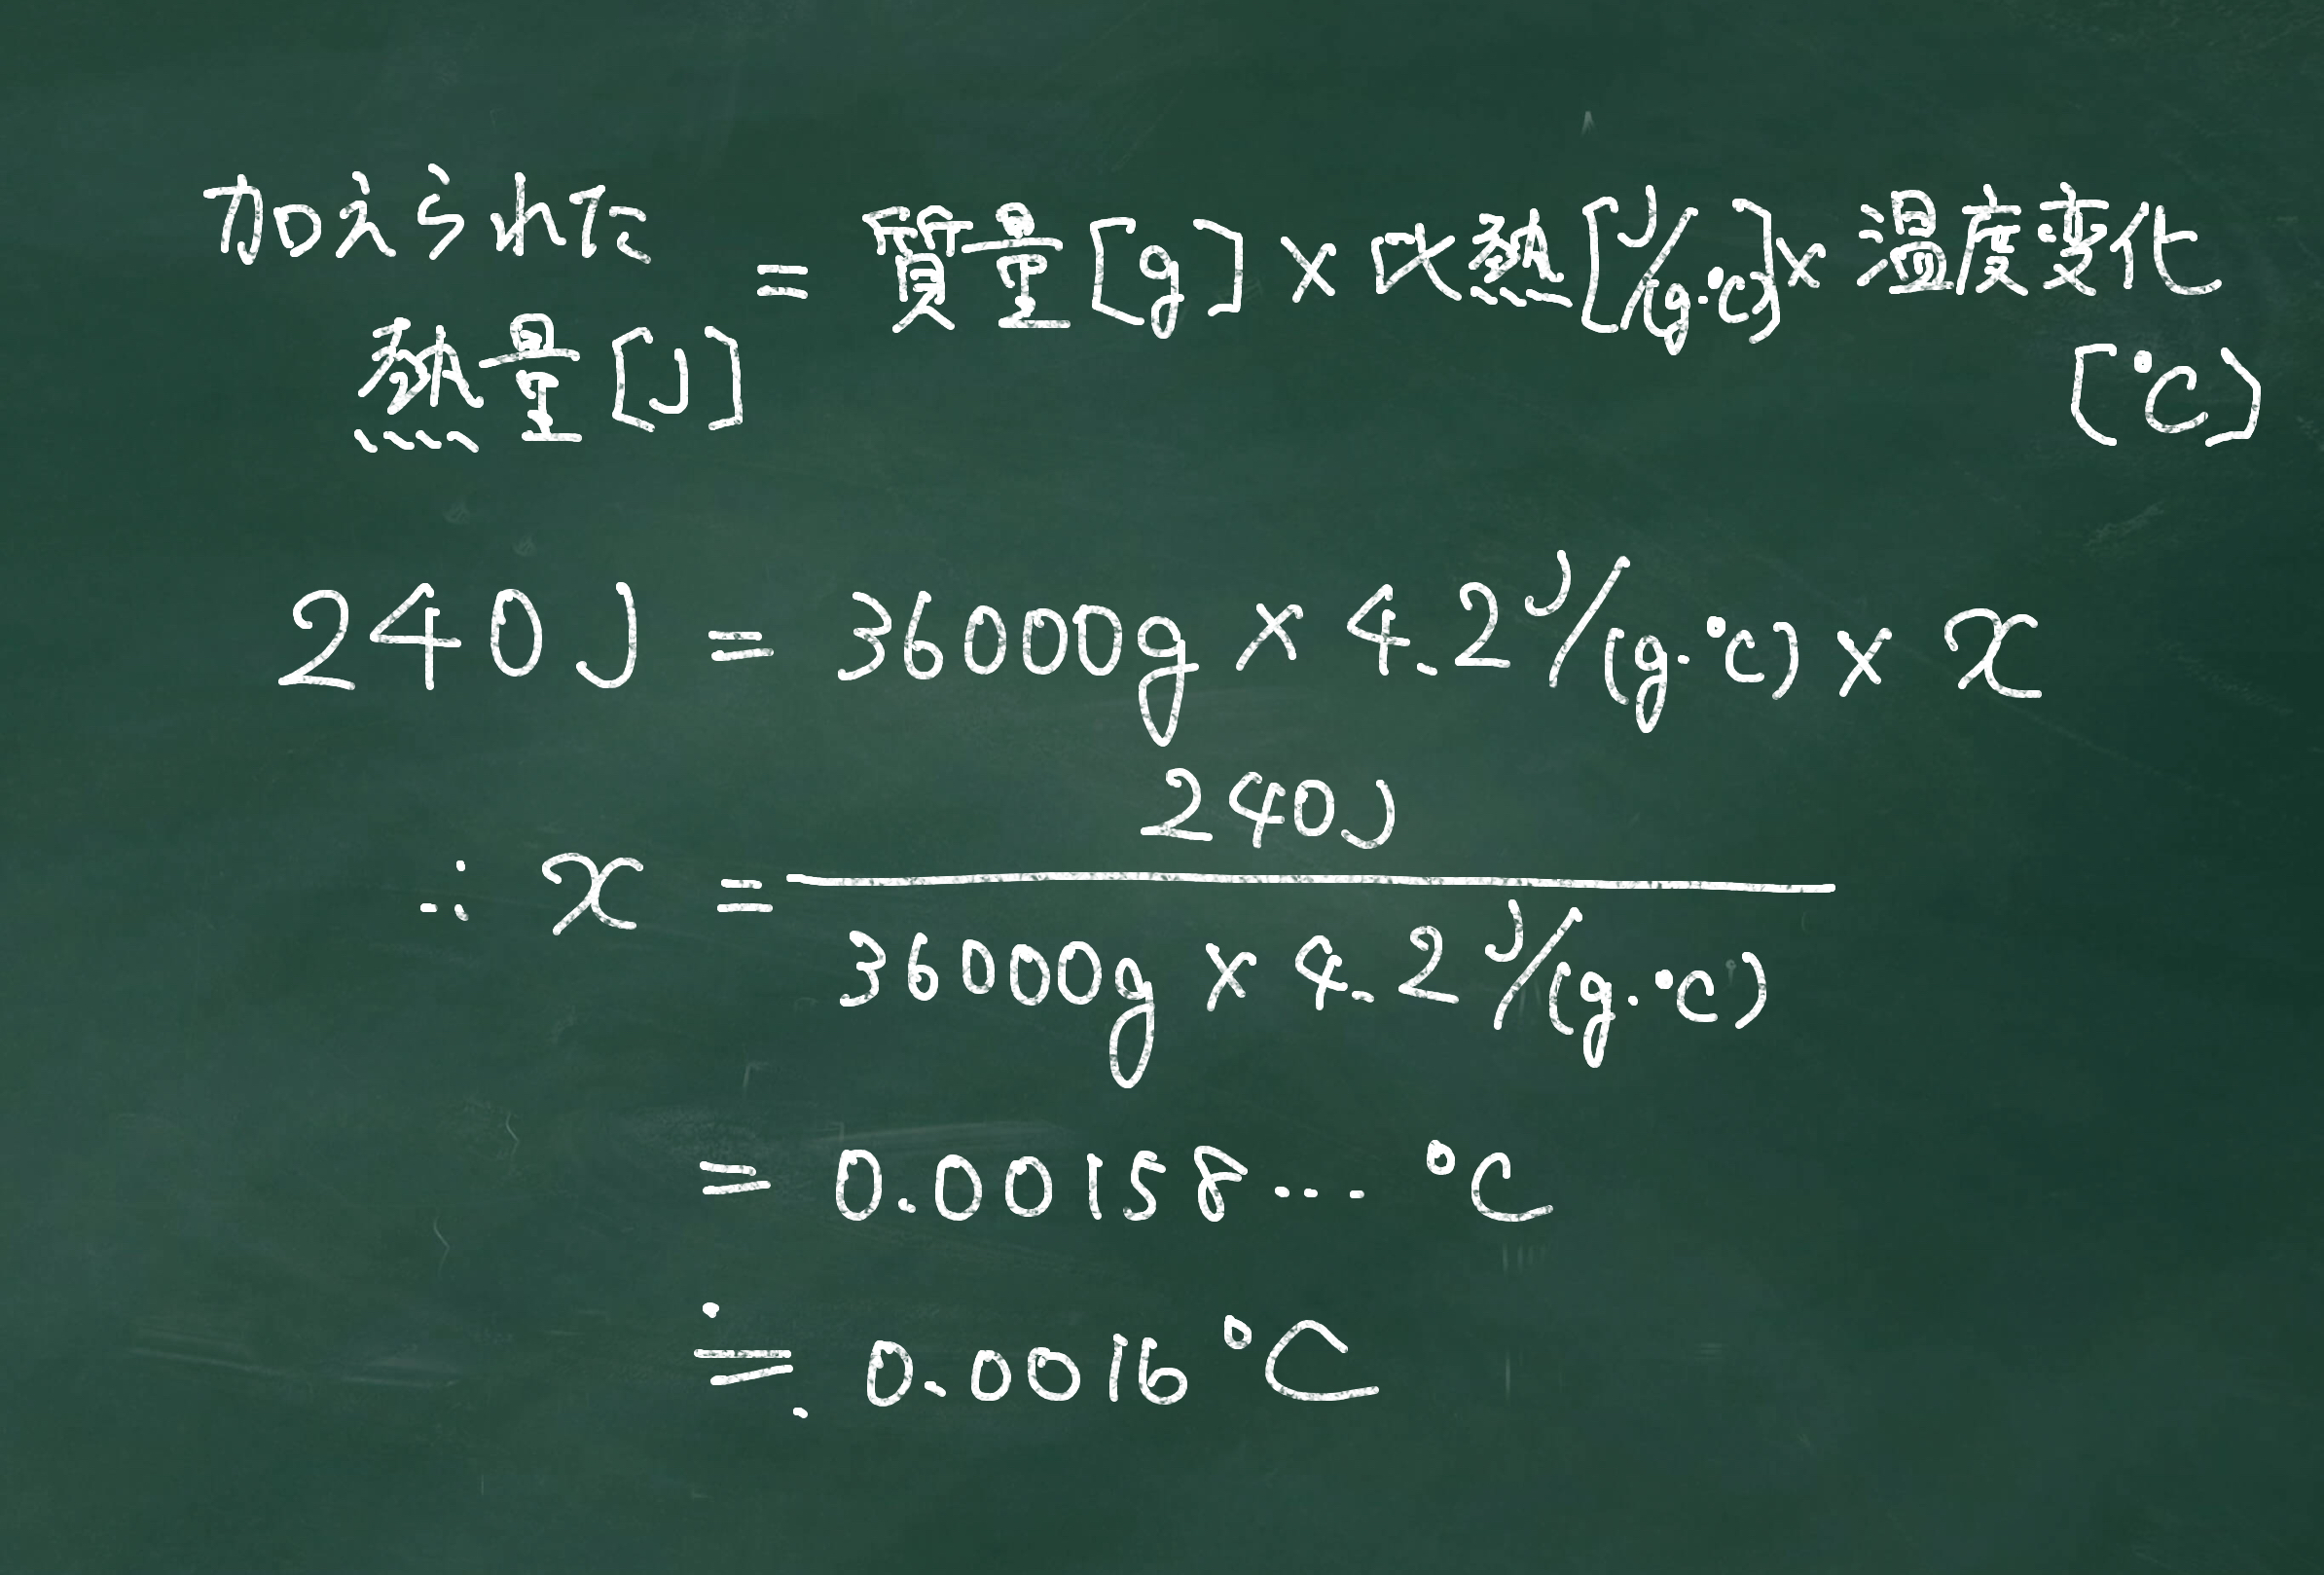 加えられた熱量[J] = 質量[g] × 比熱[J/(g・℃)] × 温度変化[℃]
240J = 36000g × 4.2J/(g・℃) × x
∴ x = 240J / 36000g × 4.2J/(g・℃)
= 0.00158… ℃
≒ 0.0016℃